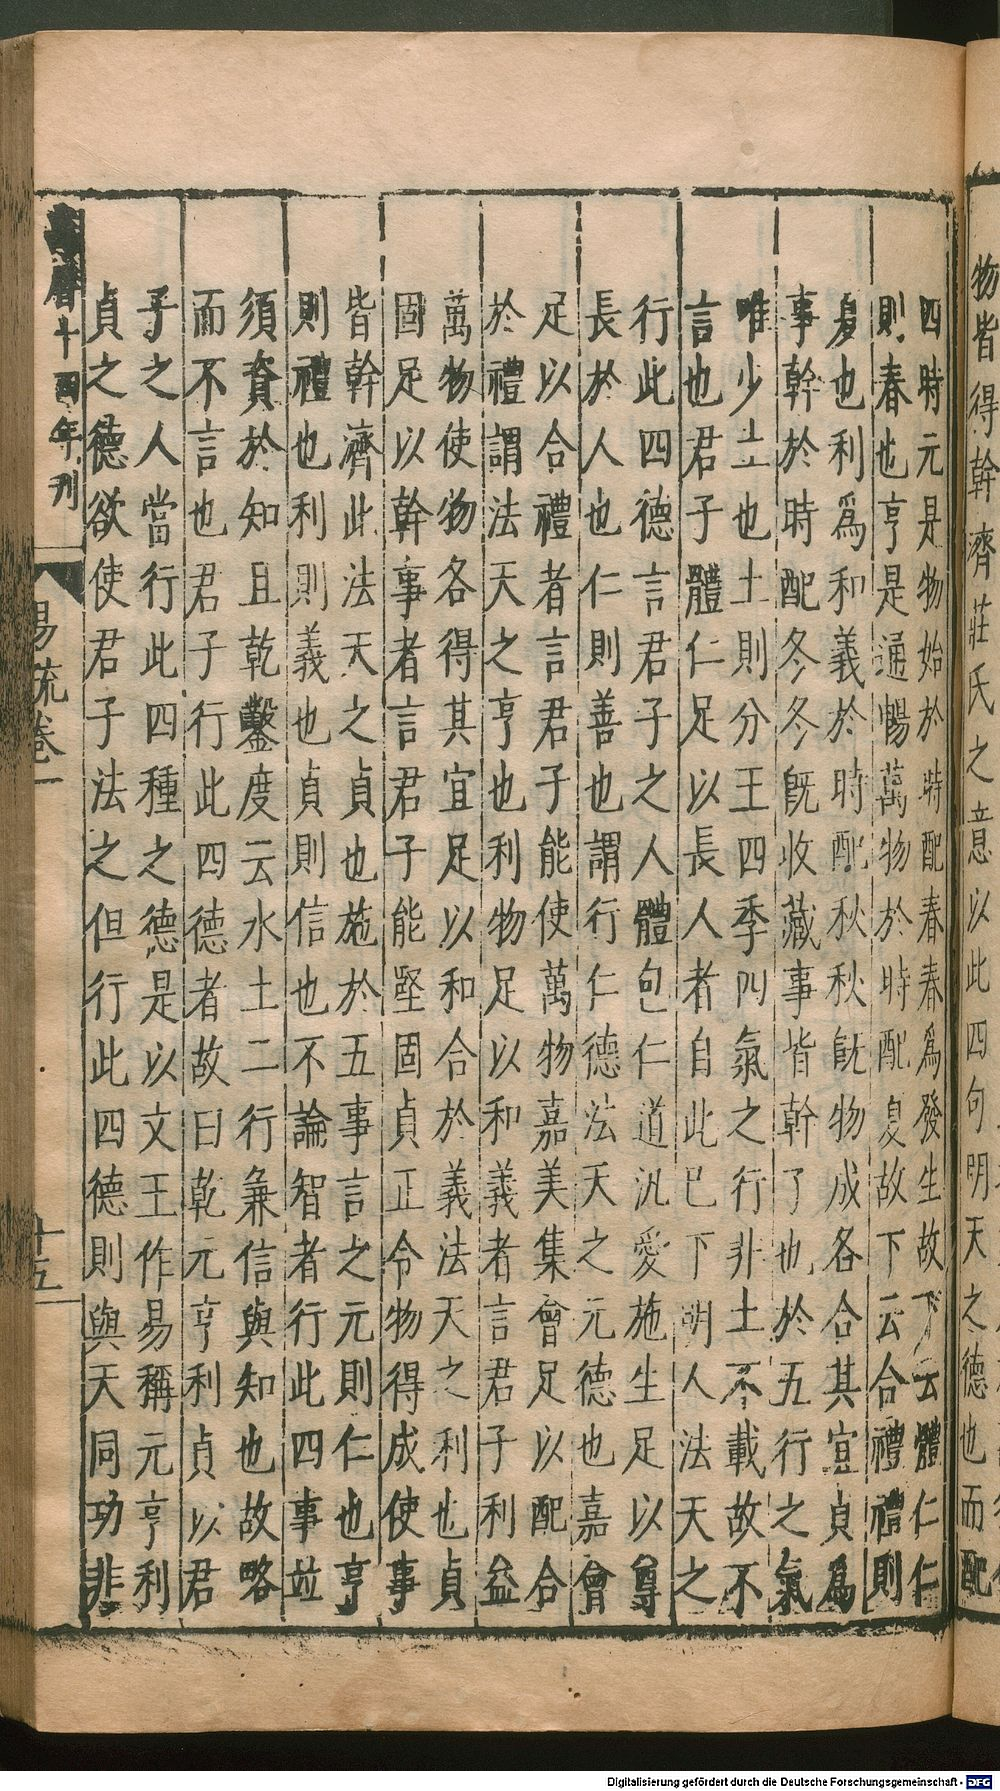 物皆得幹濟莊氏之意以此四句明天之德也而配
四時元是物始於時配春春為發生故下云體仁仁
則春也亨是通暢萬物於時配夏故下云合禮禮則
夏也利為和義於時配秋秋既物成各合其宜貞為
事幹於時配冬冬既收藏事皆幹了也於五行之氣
唯少土也土則分王四季四氣之行非土不載故不
言也君子體仁足以長人者自此已下明人法天之
行此四德言君子之人體包仁道汎愛施生足以尊
長於人也仁則善也謂行仁德法天之元德也嘉會
足以合禮者言君子能使萬物嘉美集會足以配合
於禮謂法天之亨也利物足以和義者言君子利益
萬物使物各得其宜足以和合於義法天之利也貞
固足以幹事者言君子能堅固貞正令物得成使事
皆幹濟此法天之貞也施於五事言之元則仁也亨
則禮也利則義也貞則信也不論智者行此四事並
須資於知且乾鑿度云水土二行兼信與知也故略
而不言也君子行此四德者故曰乾元亨利貞以君
子之人當行此四種之德是以文王作易稱元亨利
貞之德欲使君子法之但行此四德則與天同功非
曆十四年刊
易疏卷一
十五
Digitalisierung gefördert durch die Deutsche Forschungsgemeinschaft - DFG